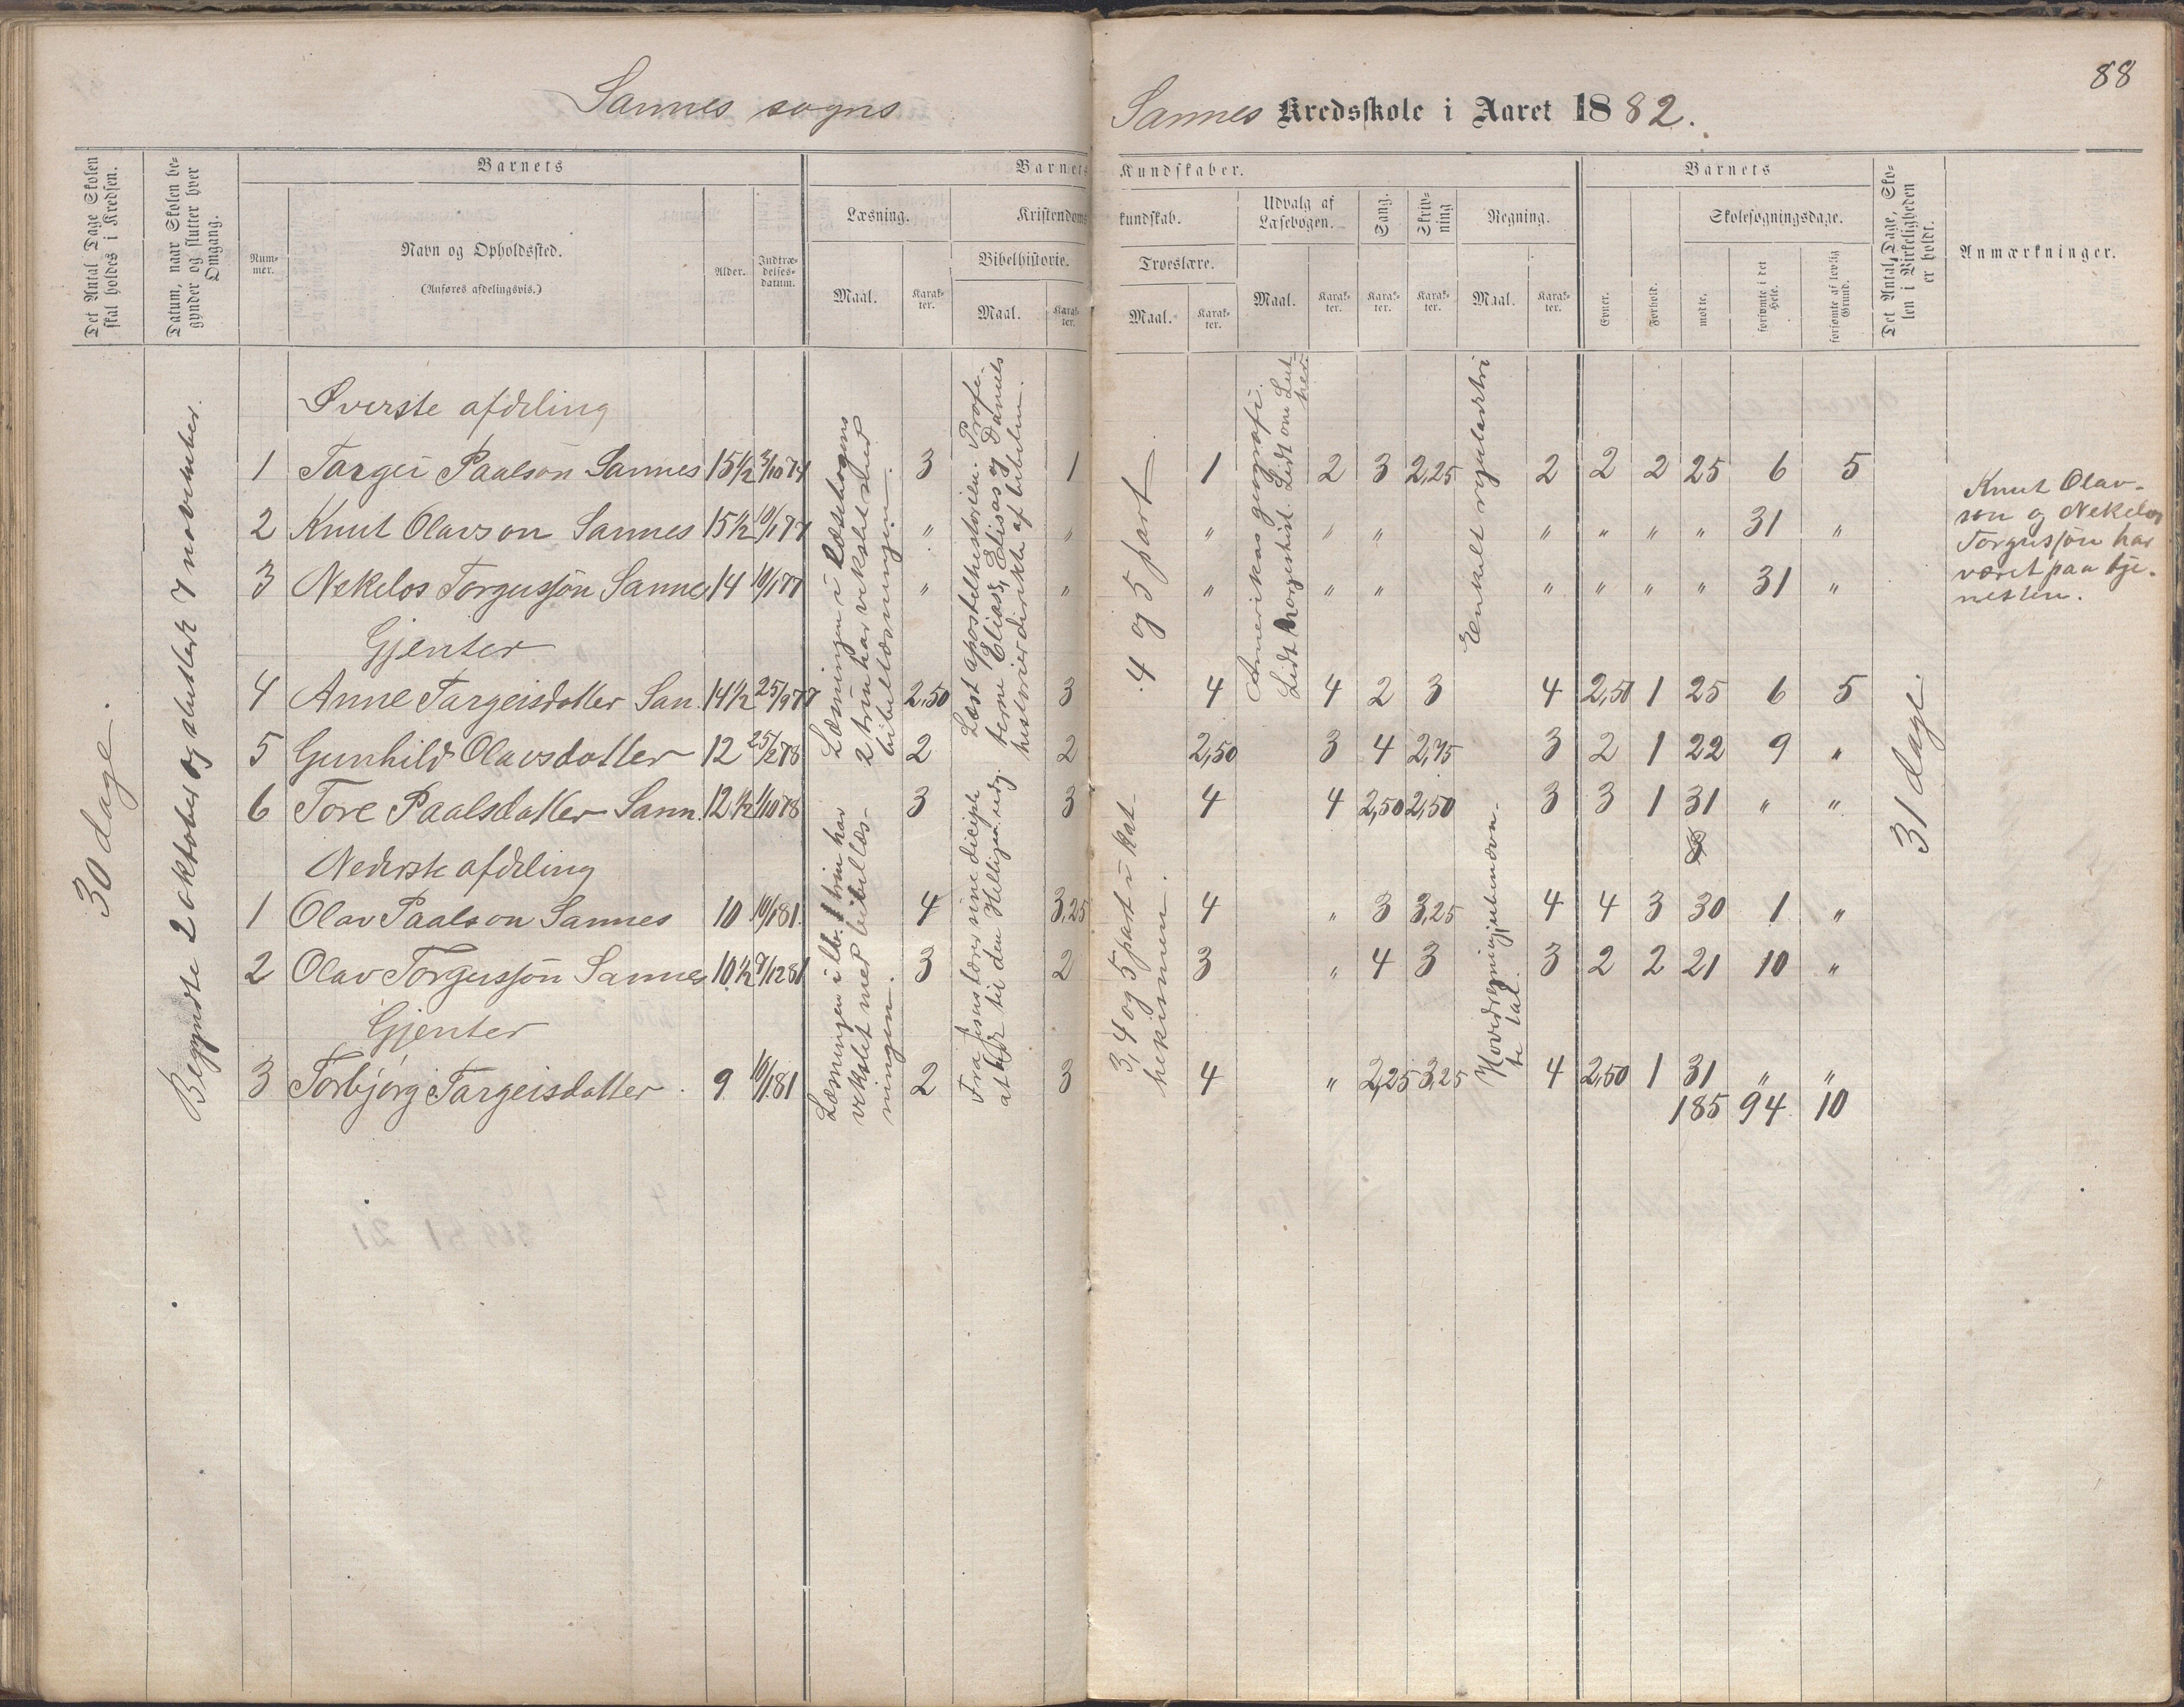 88
Sannes sogns
Sannes Kredsskole i Aaret 1882.
Det Antal Dage Skolen skal holdes i Kredsen.
Datum, naar Skolen begynder og slutter hver Omgang.
Barnets
Nummer.
Navn og Opholdssted.
(Anføres afdelingsvis.)
Alder.
Indtrædelsesdatum.
Barnets Kundskaber.
Læsning.
Maal.
Karakter.
Kristendomskundskab.
Bibelhistorie.
Maal.
Karakter.
Troeslære.
Maal.
Karakter.
Udvalg af Læsebogen.
Maal.
Karakter.
Sang.
Karakter.
Skrivning
Karakter.
Regning.
Maal.
Karakter.
Barnets
Evner.
Forhold.
Skolesøgningsdage.
mødte.
forsømte i det Hele.
forsømte af lovlig Grund.
Det Antal Dage, Skolen i Virkeligheden er holdt.
Anmærkninger.
30 dage.
Begyndte 2 oktober og sluttede 7 november.
Øverste afdeling
1 Targei Paalson Sannes 15½ 3/10 74 3 1 1 2 3 2,25 2 2 2 25 6 5
2 Knut Olavson Sannes 15½ 10/1 77 " " " " " " " " " 31 "
3 Nekelos Torgussøn Sannes 14 10/1 77 " " " " " " " " " 31 "
Gjenter
4 Anne Targeisdotter San. 14½ 25/9 77 2,50 3 4 4 2 3 4 2,50 1 25 6 5
5 Gunhild Olavsdotter 12 25/2 78 2 2 2,50 3 4 2,75 3 2 1 22 9 "
6 Tore Paalsdatter Sann. 12½ 1/10 78 3 3 4 4 2,50 2,50 3 3 1 31 " "
Nederste afdeling
1 Olav Paalson Sannes 10 10/1 81. 4 3,25 4 " 3 3,25 4 4 3 30 1 "
2 Olav Torgussøn Sannes 10½ 9/12 81 3 2 3 " 4 3 3 2 2 21 10 "
Gjenter
3 Torbjørg Targeisdatter 9 10/1 81 2 3 4 " 2,25 3,25 4 2,50 1 31 " "
185 94 10
Læsningen i Læsebogens
2 trin har vekslet med
bibellæsningen.
Læsningen i lb. 1 trin har
vekslet med bibellæs-
ningen.
Læst apostelhistorien. Profe-
terne Elias, Elisas og Daniels
historier dirikte af bibelen.
Fra Jesus lærer sine diciple
at bede til den Helligaa. udg.
4 og 5 part
3, 4 og 5 part i kat-
hekismen.
Amerikas geografi.
Lidt norgeshist. Lidt om Lut-
her.
Enkelt reguladetri
Hovedregning i ubenævn-
te tal.
31 dage.
Knut Olav-
son og Nekelos
Torgussøn har
været paa tje-
nesten.